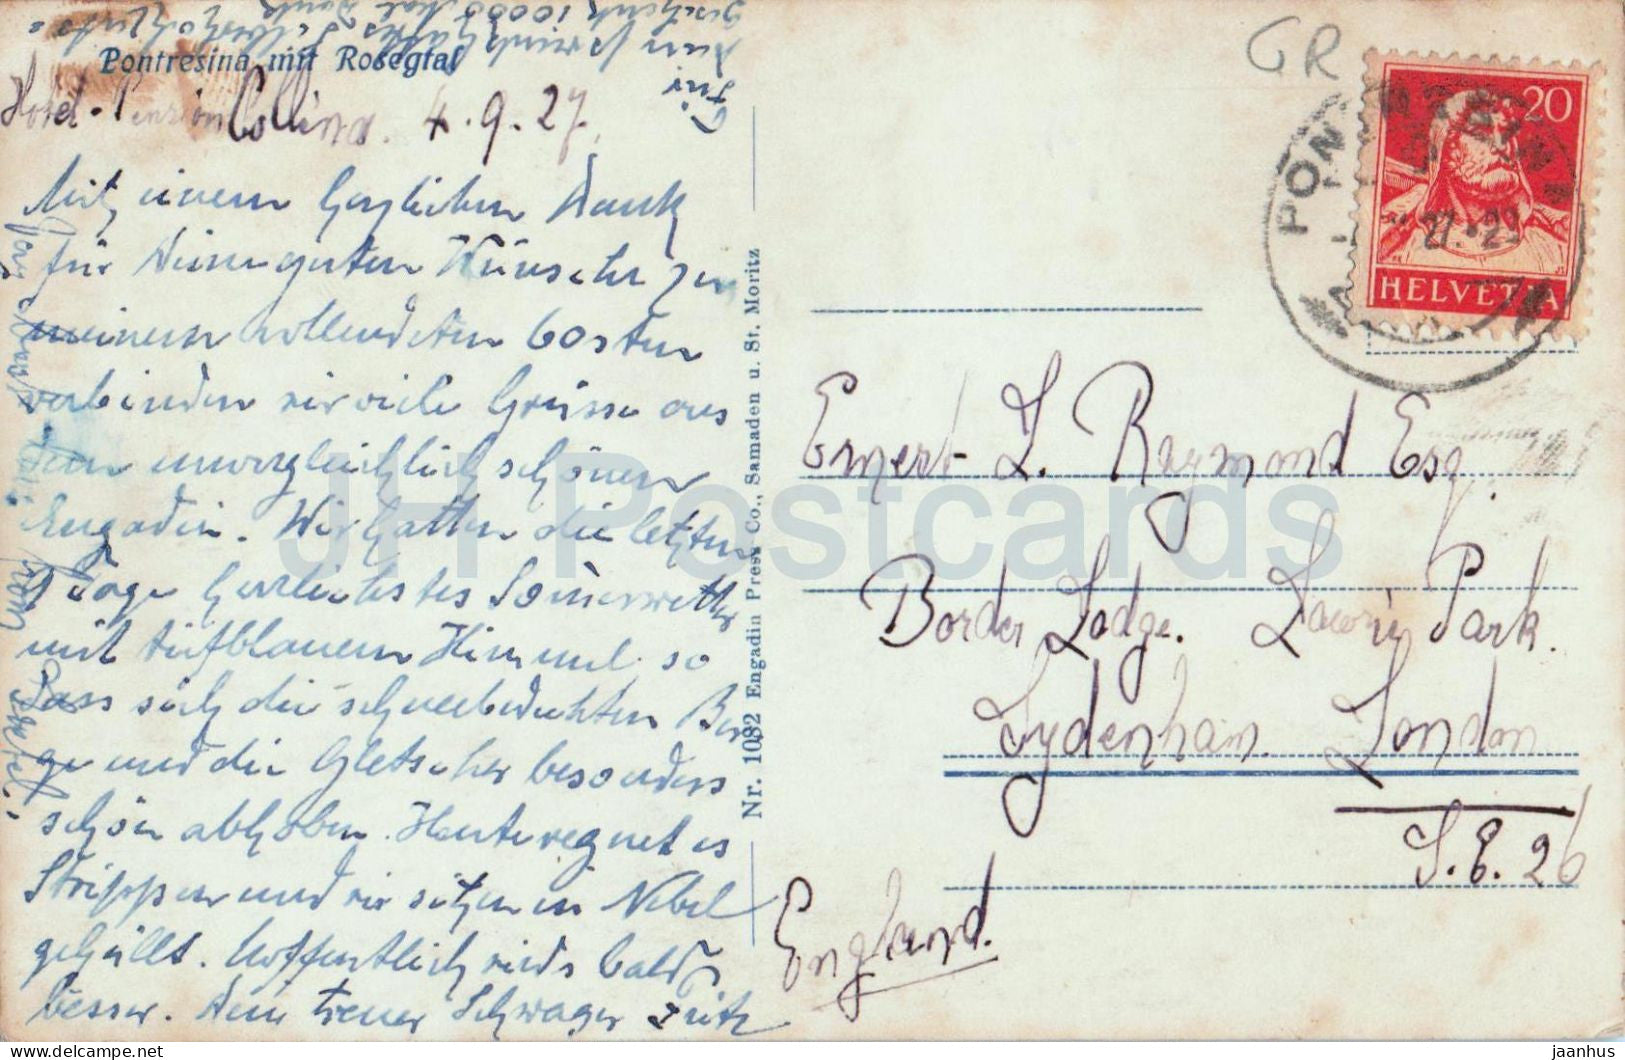 Pontresina mit Rosegtal
Hotel-Pension Collina. 4.9.27.
Mit einem herzlichen Dank
für Deine guten Wünsche zu
meinem vollendeten 60sten
verbinden wir viele Grüsse aus
dem unvergleichlich schönen
Engadin. Wir hatten die letzten
Tage herrlichstes Sommerwetter
mit tiefblauem Himmel, so
dass sich die schneebedeckten Ber
ge und die Gletscher besonders
schön abhoben. Heute regnet es
Strippen und wir sitzen in Nebel
gehüllt. Hoffentlich wirds bald
besser. Dein treuer Schwager Fritz
Für
Dank
10000 Mal
Nr. 1082 Engadin Press Co., Samaden u. St. Moritz
GR
20
HELVETIA
PONTRESINA
Ernest L. Raymond Esq.
Border Lodge. Lawrie Park.
Sydenham London
S.E.26
England.
JH Postcards
delcampe.net
jaanhus